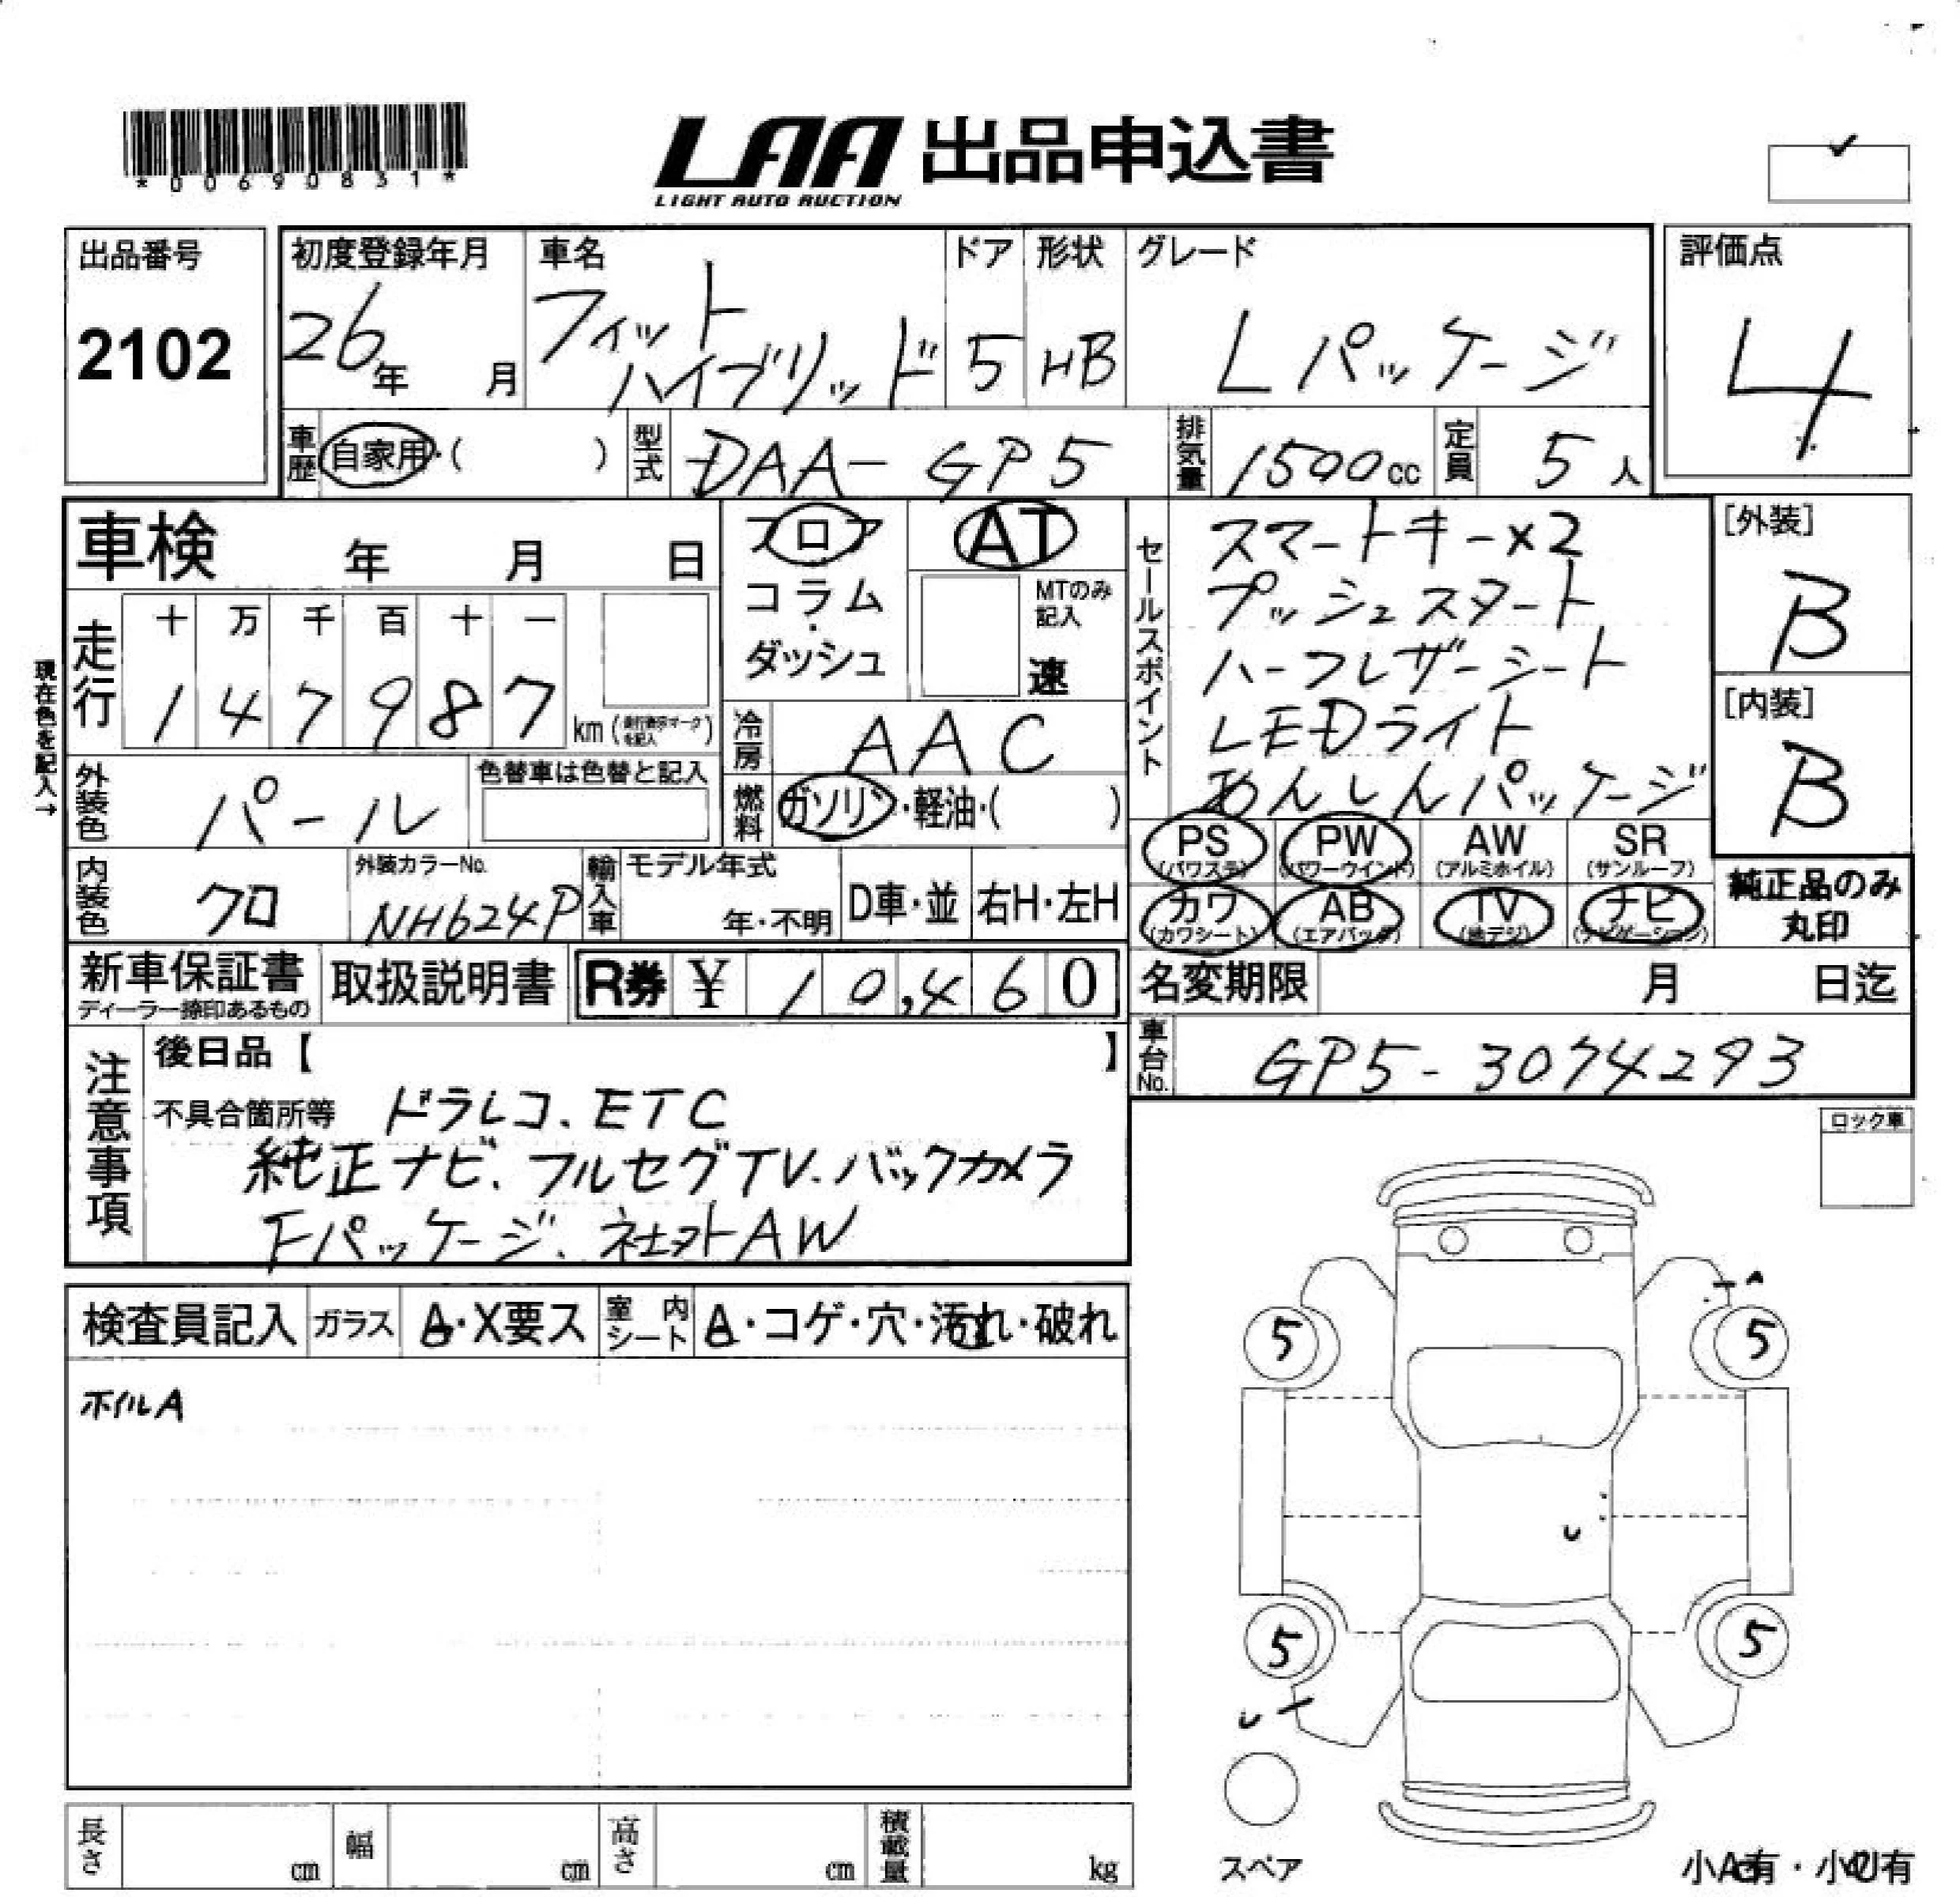 *00690831*
LAA 出品申込書
LIGHT AUTO AUCTION
出品番号
2102
初度登録年月
26年 月
車名
フィット
ハイブリッド
ドア
5
形状
HB
グレード
Lパッケージ
評価点
4
車歴
自家用・( )
型式
DAA-GP5
排気量
1500cc
定員
5人
車検 年 月 日
現在色を記入→
走行
十 万 千 百 十 一
1 4 7 9 8 7
km(走行表示マークを記入)
フロア
コラム
・
ダッシュ
AT
MTのみ
記入
速
冷房
AAC
燃料
ガソリン・軽油・( )
外装色
パール
色替車は色替と記入
内装色
クロ
外装カラーNo.
NH624P
輸入車
モデル年式
年・不明
D車・並
右H・左H
セールスポイント
スマートキー×2
プッシュスタート
ハーフレザーシート
LEDライト
あんしんパッケージ
[外装]
B
[内装]
B
PS
(パワステ)
PW
(パワーウインド)
AW
(アルミホイル)
SR
(サンルーフ)
カワ
(カワシート)
AB
(エアバック)
TV
(地デジ)
ナビ
(ナビゲーション)
純正品のみ
丸印
新車保証書
ディーラー捺印あるもの
取扱説明書
R券 ¥ 10,460
名変期限 月 日迄
車台No.
GP5-3074293
注意事項
後日品【 】
不具合箇所等 ドラレコ、ETC
純正ナビ、フルセグTV、バックカメラ
Fパッケージ、社外AW
ロック車
検査員記入
ガラス
A・X要ス
室内シート
A・コゲ・穴・汚れ・破れ
ホイルA
A
5 5
U
5 5
U
スペア
長さ cm
幅 cm
高さ cm
積載量 kg
小A有・小U有